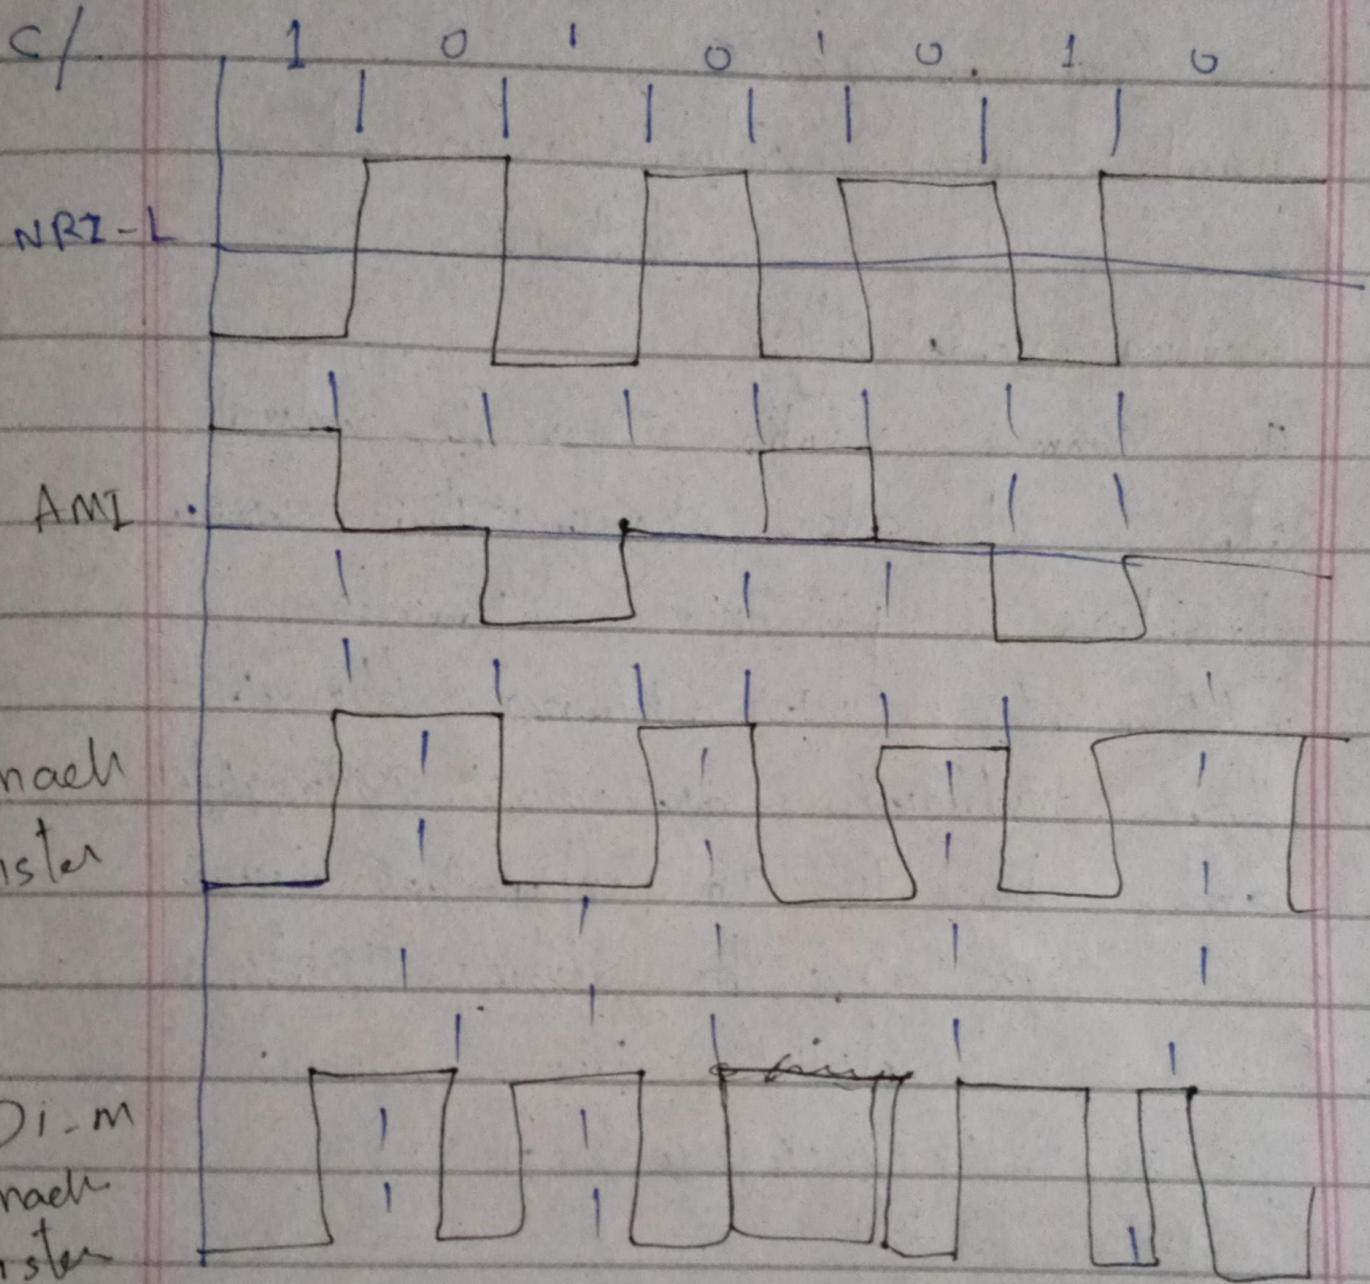 c/ 1 0 1 0 1 0. 1 0
NRZ-L
AMI
nach
ister
Di-m
nach
nster